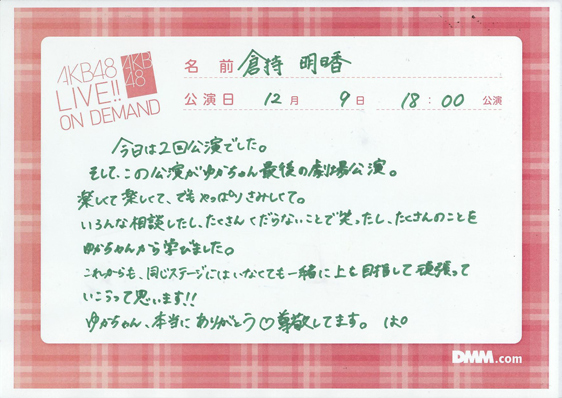 AKB48
LIVE!!
ON DEMAND
AKB
48
名 前 倉持 明日香
公演日 12月 9日 18:00 公演
今日は2回公演でした。
そして、この公演がゆかちゃん最後の劇場公演。
楽しくて楽しくて、でもやっぱりさみしくて。
いろんな相談したし、たくさんくだらないことで笑ったし、たくさんのことを
ゆかちゃんから学びました。
これからも、同じステージにはいなくても一緒に上を目指して頑張って
いこうって思います!!
ゆかちゃん、本当にありがとう♡尊敬してます。 は。
DMM.com